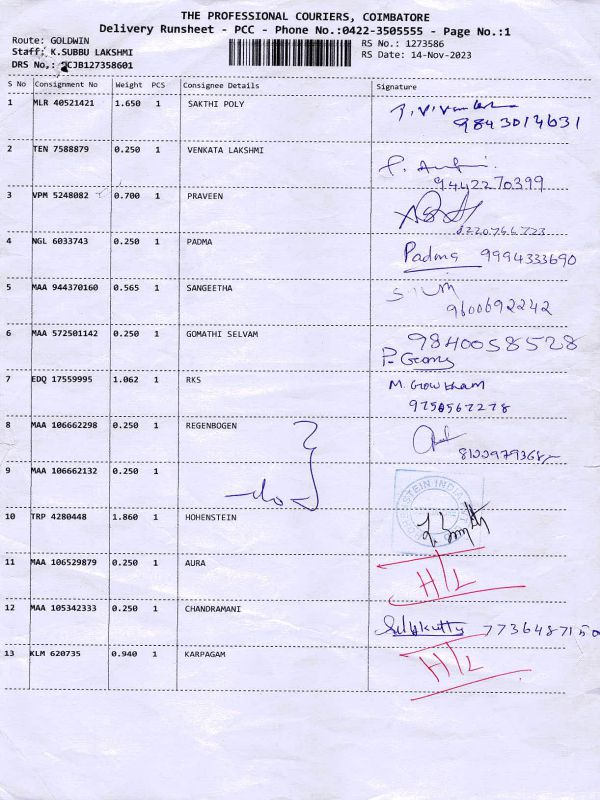 THE PROFESSIONAL COURIERS, COIMBATORE
Delivery Runsheet - PCC - Phone No.:0422-3505555 - Page No.:1
Route: GOLDWIN RS No.: 1273586
Staff: K.SUBBU LAKSHMI RS Date: 14-Nov-2023
DRS No.: CJB127358601
S No Consignment No Weight PCS Consignee Details Signature
1 MLR 40521421 1.650 1 SAKTHI POLY
9843014631
2 TEN 7588879 0.250 1 VENKATA LAKSHMI
9442270399
3 VPM 5248082 0.700 1 PRAVEEN
8220766723
4 NGL 6033743 0.250 1 PADMA Padma 9994333690
5 MAA 944370160 0.565 1 SANGEETHA
9600692242
6 MAA 572501142 0.250 1 GOMATHI SELVAM 9840058528
7 EDQ 17559995 1.062 1 RKS M. Gowtham
9750567278
8 MAA 106662298 0.250 1 REGENBOGEN
8122979368
9 MAA 106662132 0.250 1
10 TRP 4280448 1.860 1 HOHENSTEIN HOHENSTEIN INDIA
11 MAA 106529879 0.250 1 AURA H/L
12 MAA 105342333 0.250 1 CHANDRAMANI 7736487150
13 KLM 620735 0.940 1 KARPAGAM H/L